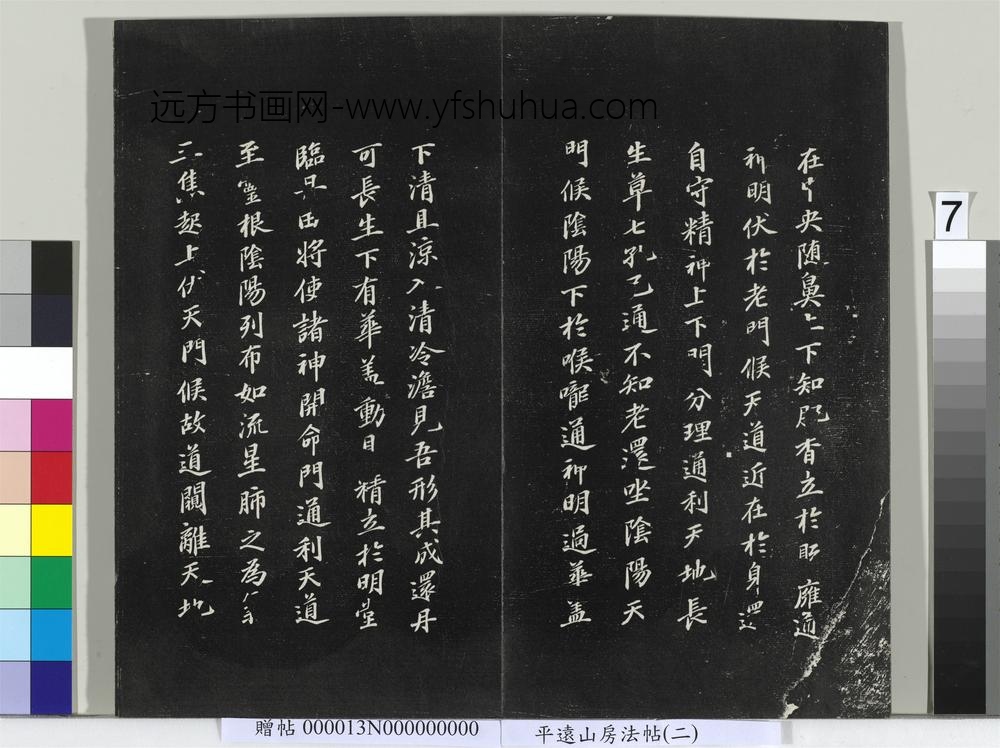 远方书画网-www.yfshuhua.com
7
在中央随鼻上下知肥香立於
雍通
神明伏於老門候天道近在於身還
自守精神上下門分理通利天地長
生草七孔已通不知老還坐陰陽天
門候陰陽下於喉嚨通神明過華蓋
下清且涼入清冷淵見吾形其成還丹
可長生下有華蓋動日精立於明堂
臨丹田將使諸神開命門通利天道
至靈根陰陽列布如流星肺之為氣
三焦起上伏天門候故道闚離天地
贈帖 000013N000000000
平遠山房法帖(二)